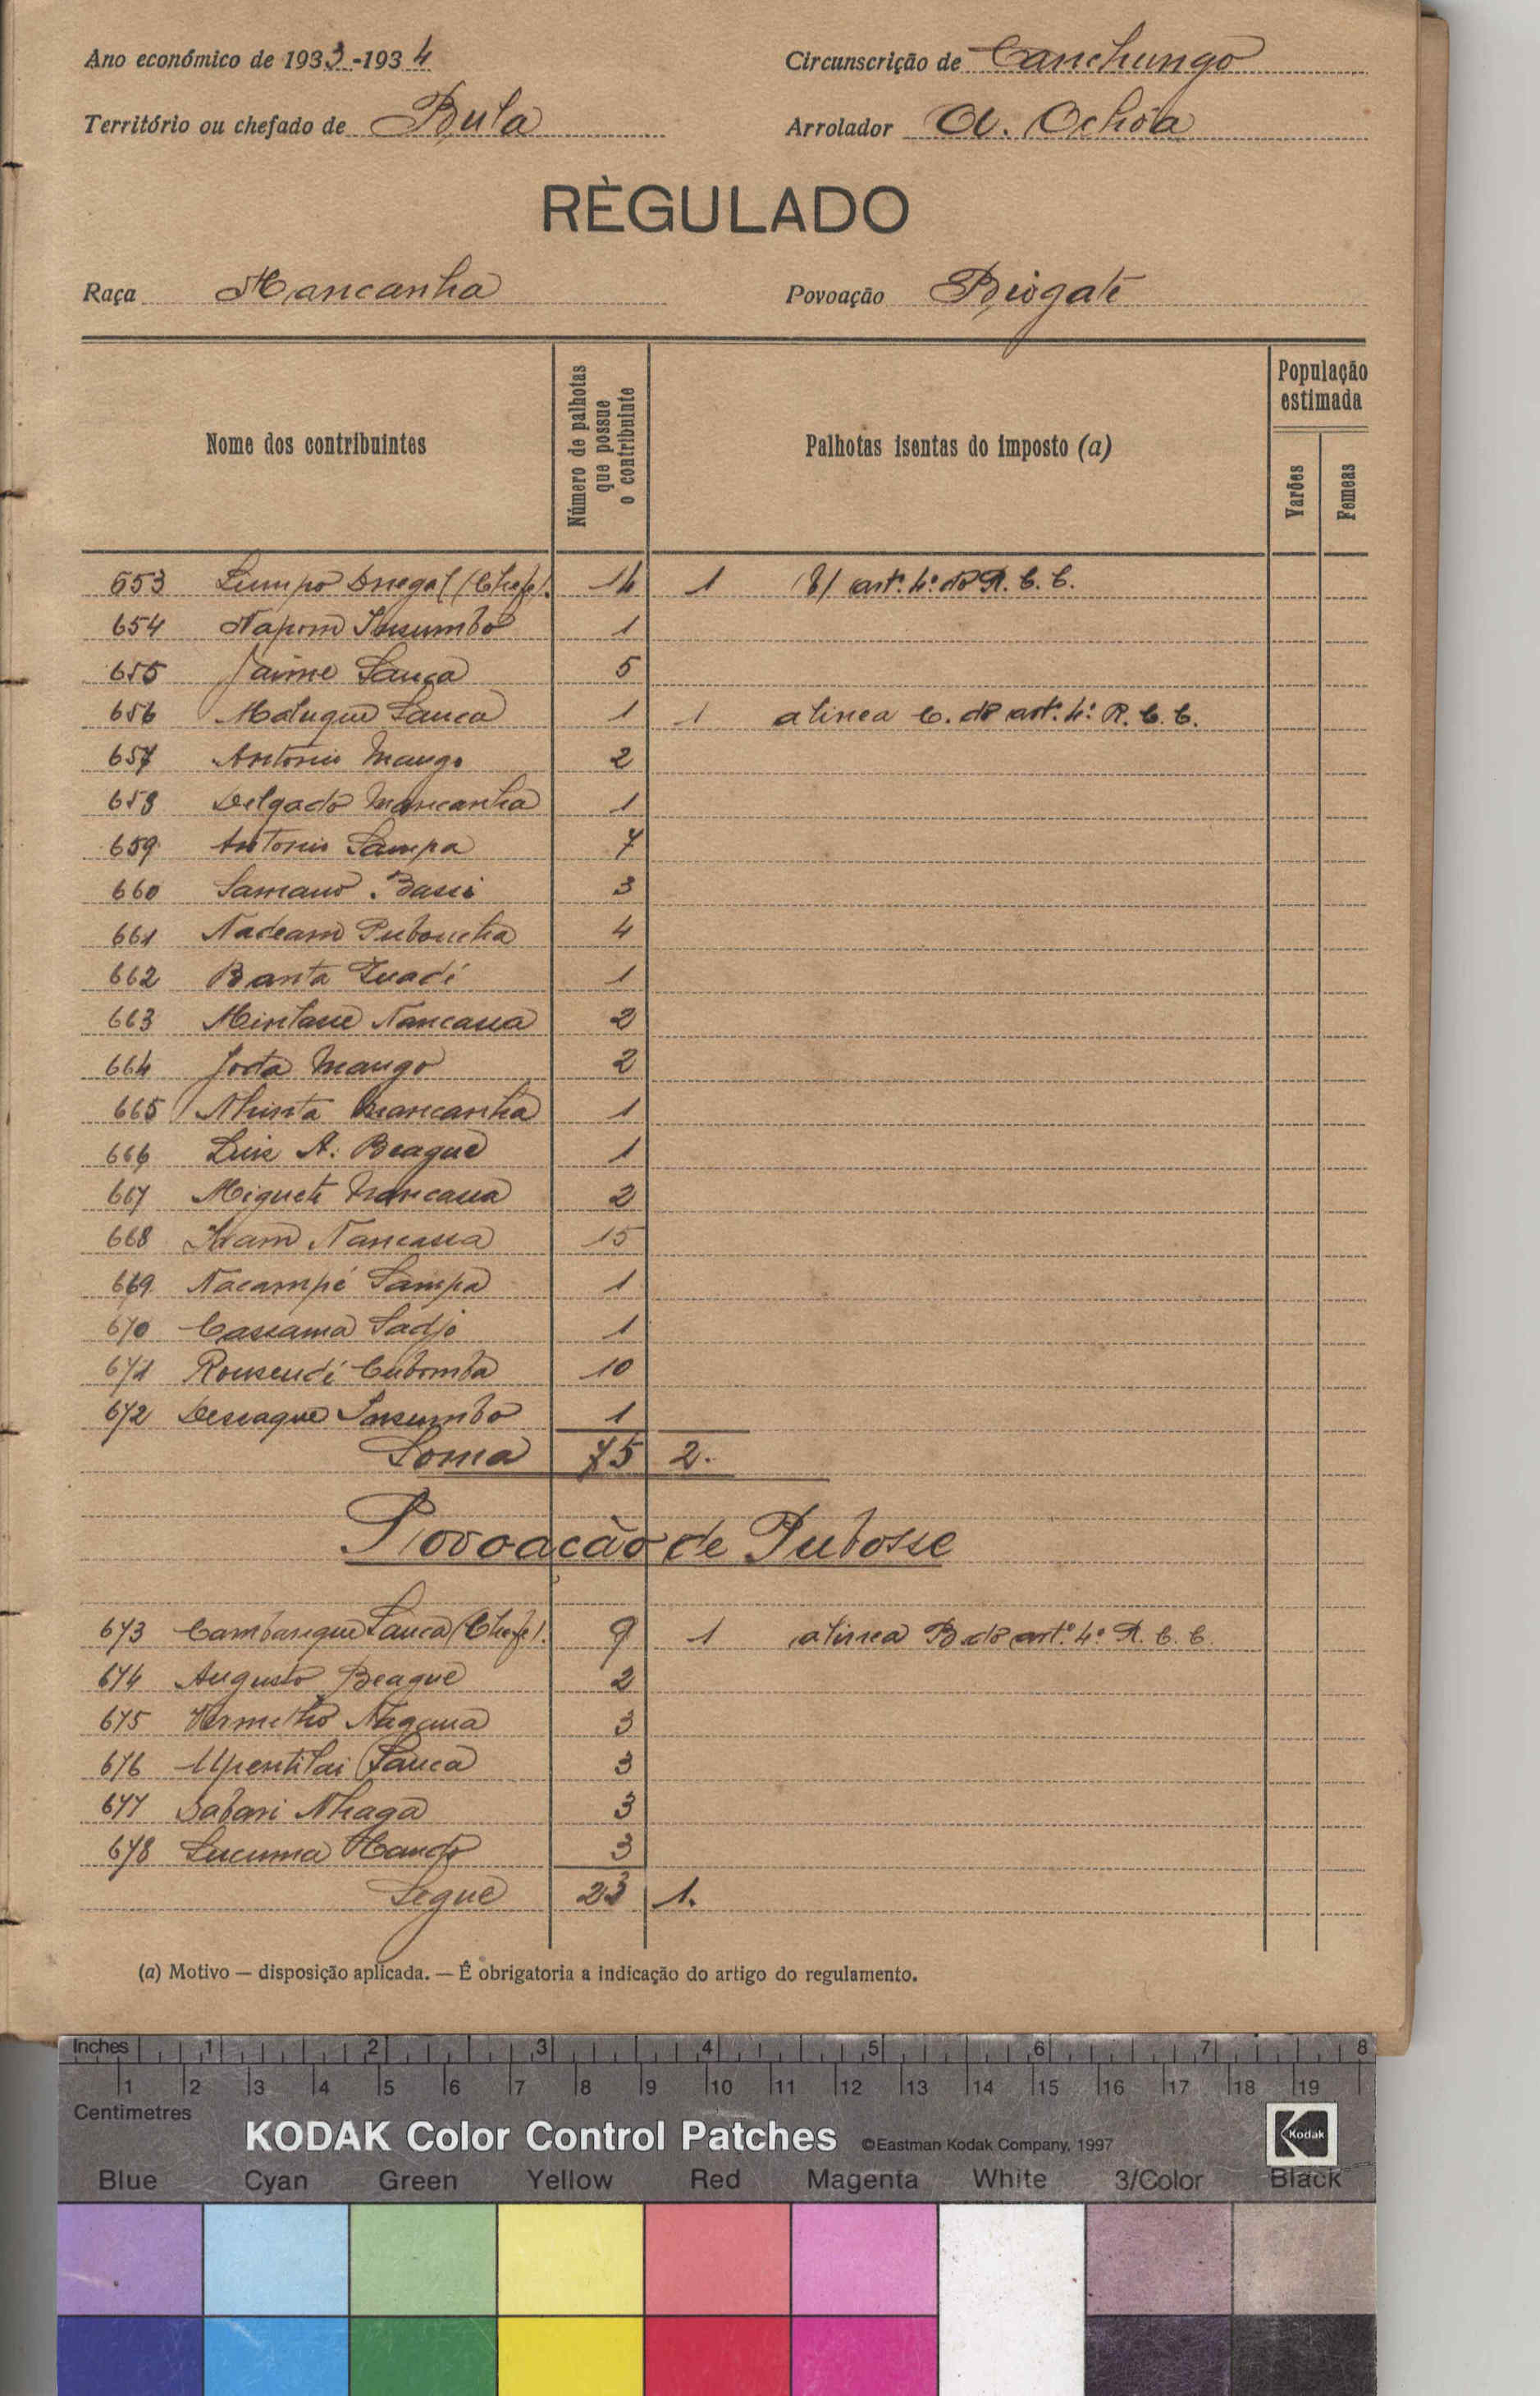 Ano económico de 1933-1934 Circunscrição de Canchungo
Território ou chefado de Bula Arrolador A. Ochôa
RÈGULADO
Raça Mancanha Povoação Biogate
Nome dos contribuintes Número de palhotas que possue o contribuinte Palhotas isentas do imposto (a) População estimada
Varões Femeas
653 (Chefe) 14 1 b/ artº. 4º. do R. C. C.
654 Napom Insumbo 1
655 Jaime Sanca 5
656 Matuque Sanca 1 1 alinea C. do artº. 4º. R. C. C.
657 Antonio Mango 2
658 Delgado Mancanha 1
659 Antonio Sampa 7
660 3
661 4
662 Banta 1
663 Nancassa 2
664 Jorta Mango 2
665 Nhinta Mancanha 1
666 Luis A. Beague 1
667 Miguete 2
668 Nancassa 15
669 Nacampé Sampa 1
670 Cassama Sadjo 1
671 10
672 Insumbo 1
Soma 75 2.
Povoação de Pubosse
673 Sanca (Chefe). 9 1 alinea B do artº. 4º R. C. C.
674 Augusto Beague 2
675 Vermelho 3
676 Sanca 3
677 Nhaga 3
678 3
Segue 23 1.
(a) Motivo — disposição aplicada. — É obrigatoria a indicação do artigo do regulamento.
Inches 1 2 3 4 5 6 7 8
1 2 3 4 5 6 7 8 9 10 11 12 13 14 15 16 17 18 19
Centimetres
KODAK Color Control Patches ©Eastman Kodak Company, 1997 Kodak
Blue Cyan Green Yellow Red Magenta White 3/Color Black